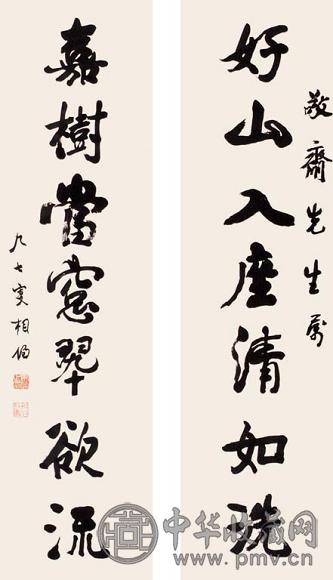 敬齋先生属
好山入座清如洗
嘉樹當窓翠欲流
九七叟相伯
中华收藏网
www.pmv.cn